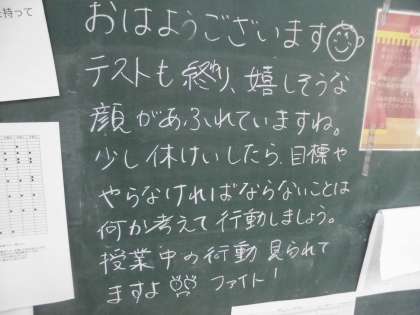 を持って
おはようございます
テストも終わり、嬉しそうな
顔があふれていますね。
少し休けいしたら、目標や
やらなければならないことは
何か考えて行動しましょう。
授業中の行動 見られて
ますよ ファイト!